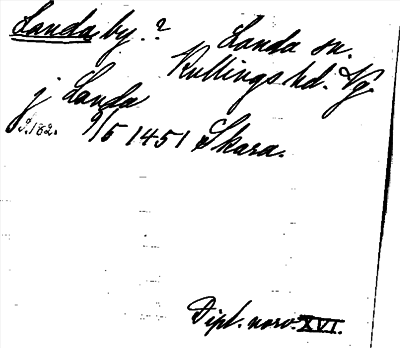 Landa by.?
Landa sn.
Kullings hd. Vg.
j Landa
s.182. 9/5 1451 Skara.
Dipl. norv. XVI.